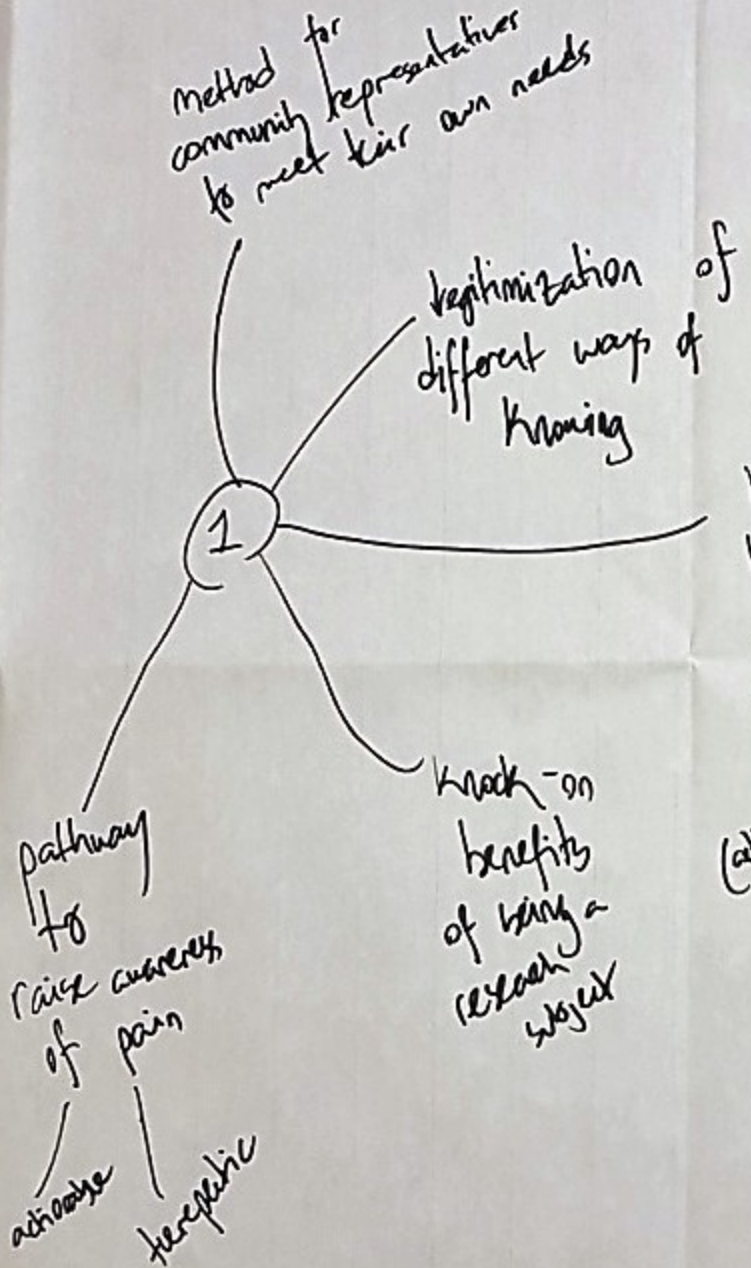 method for
community representatives
to meet their own needs
legitimization of
different ways of
knowing
1
knock-on
benefits
of being a
research
subject
pathway
to
raise awareness
of pain
therepetic